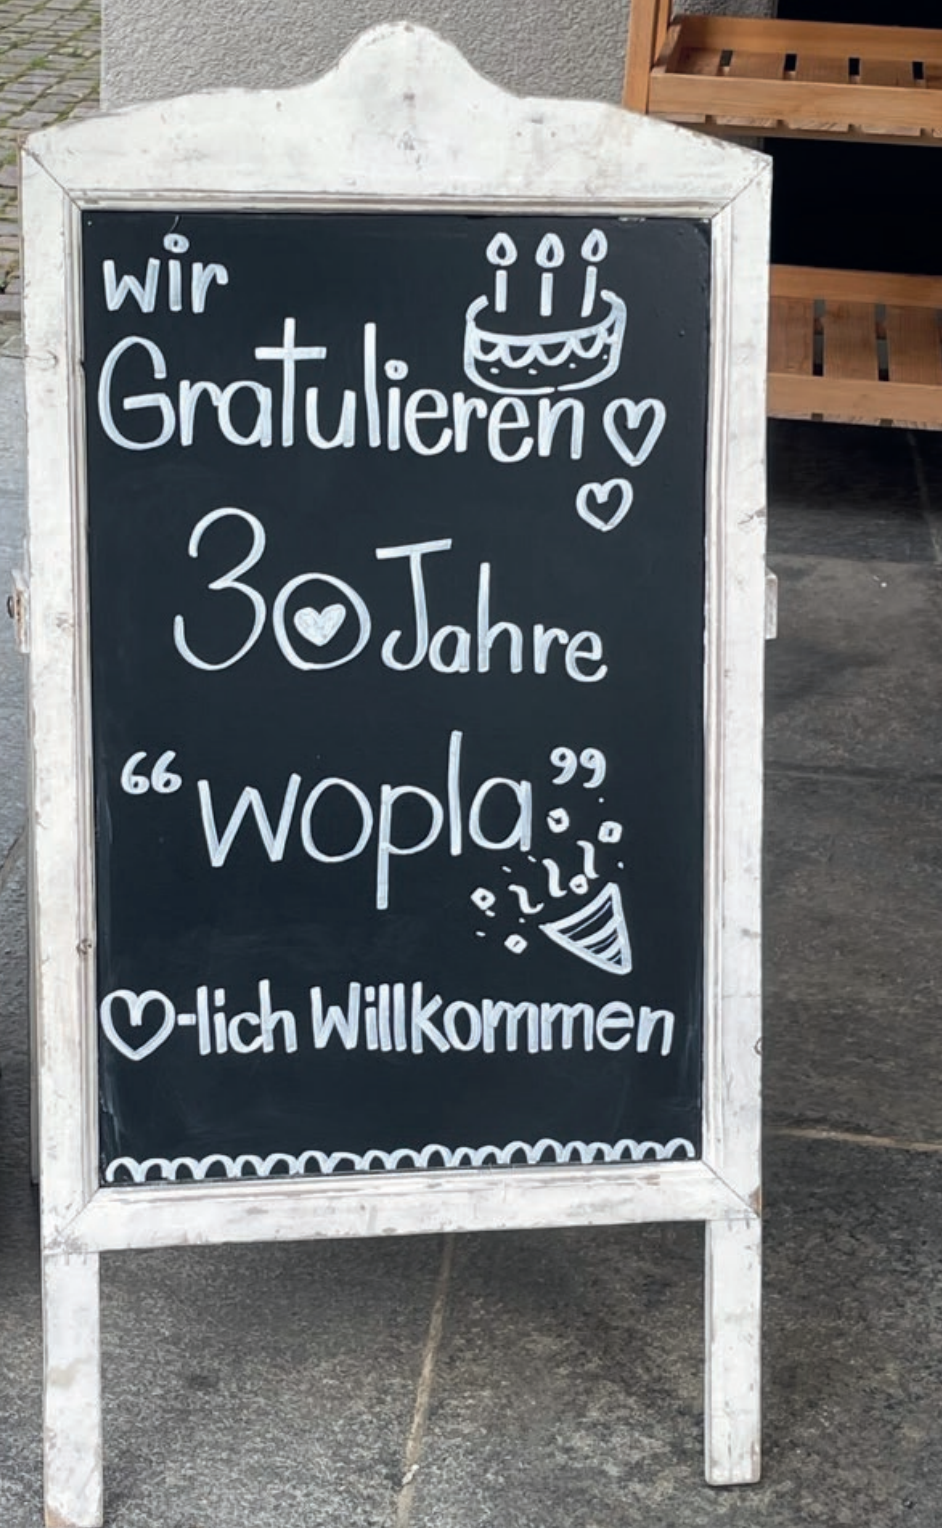 wir
Gratulieren ♡
♡
30 Jahre
“wopla”
♡-lich Willkommen